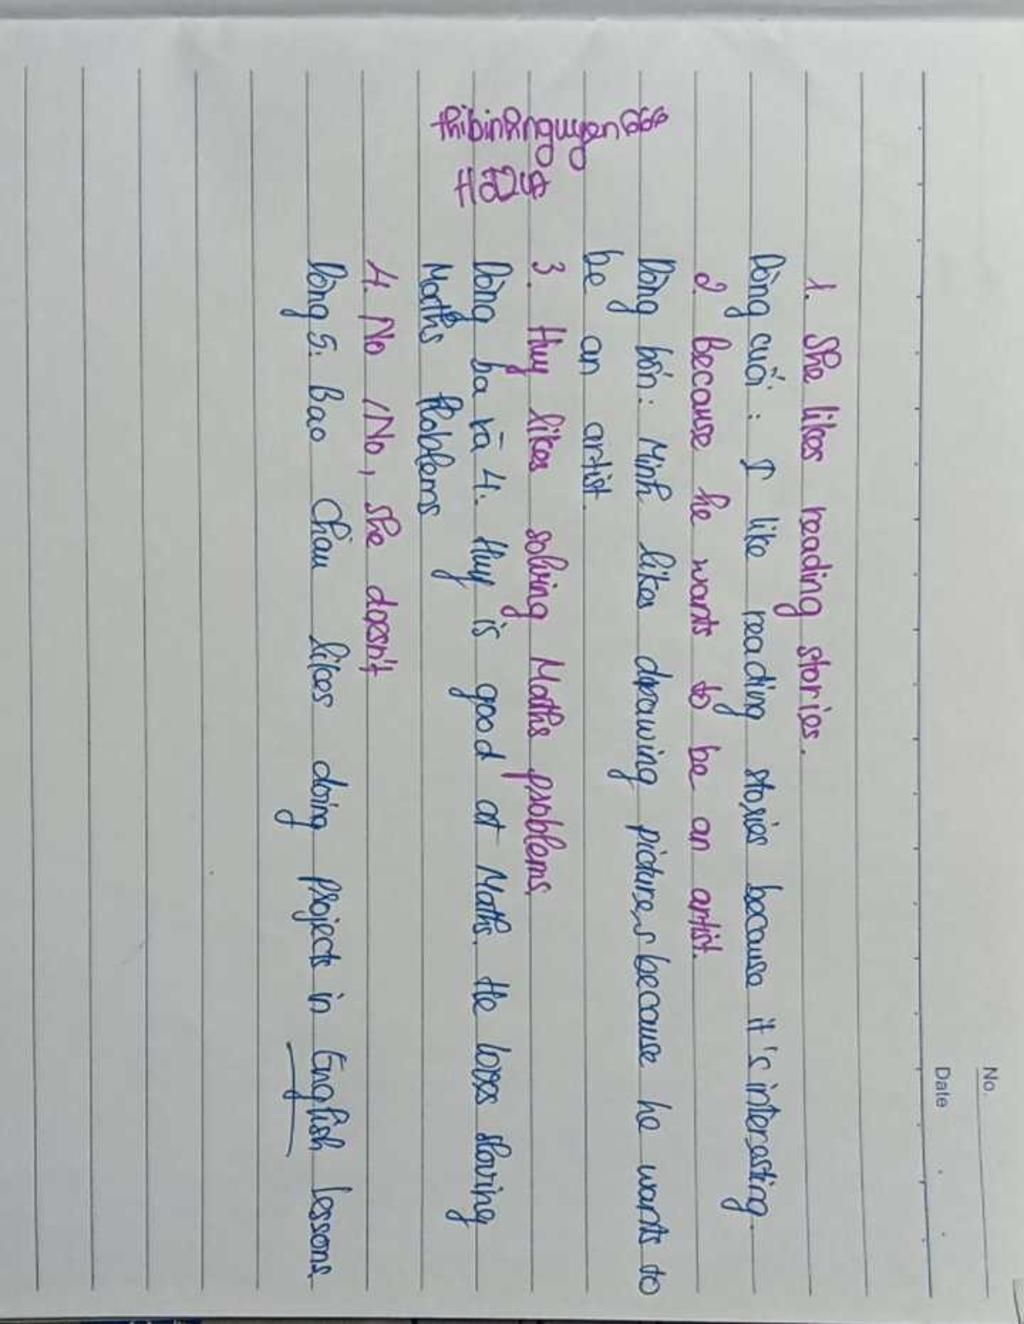 No.
Date
1. She likes reading stories.
Dòng cuối: I like reading stories because it's interesting.
2. because he wants to be an artist.
Dòng bốn: Minh likes drawing pictures because he wants to
be an artist.
3. Huy likes solving Maths problems.
Dòng ba và 4. Huy is good at Maths. He loves sloving
Maths Problems
4. No / No, she doesn't
Dòng 5: Bao Chau likes doing projects in English lessons.
thibinhnguyen668